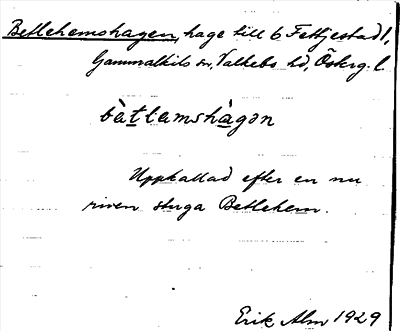 Betlehemshagen, hage till 6 Fettjestad 1,
Gammalkils sn, Valkebo hd, Österg. l.
bà̀tlamshà̀gən
Uppkallad efter en nu
riven stuga Betlehem.
Erik Alm 1929